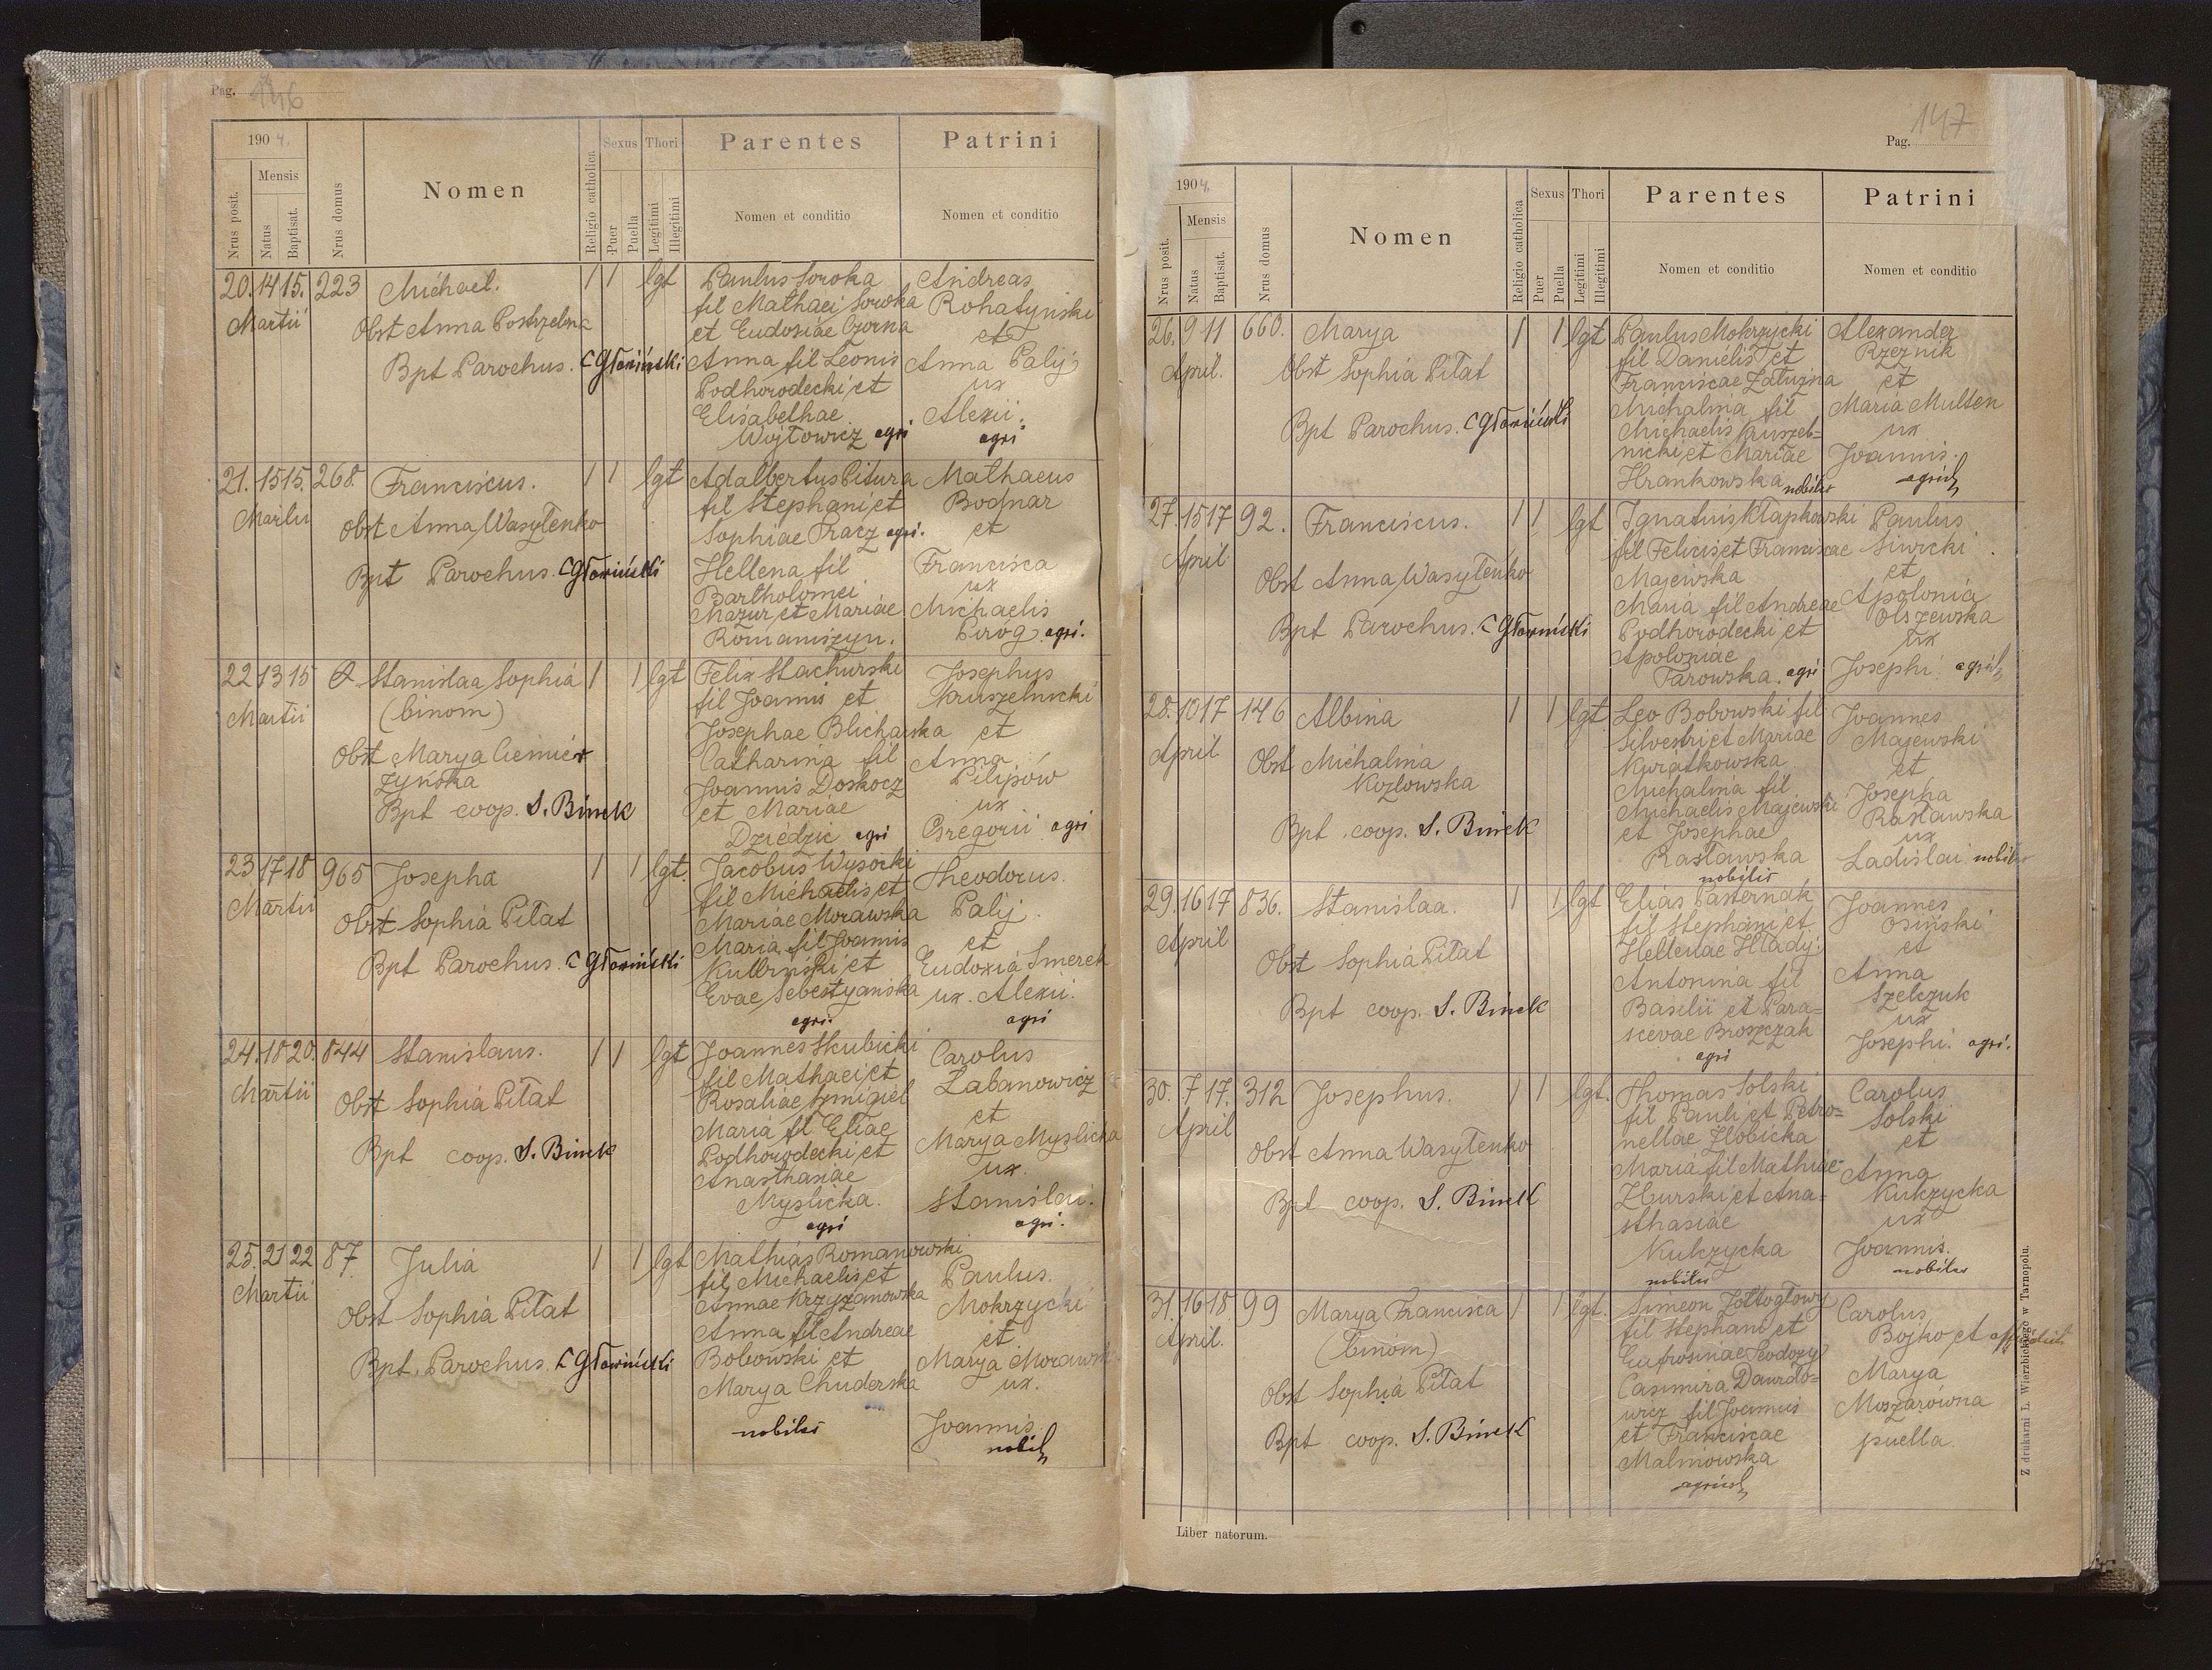 Pag. 146
1904.
Mensis
Nrus posit.
Natus
Baptisat.
Nrus domus
Nomen
Religio catholica
Sexus
Puer
Puella
Thori
Legitimi
Illegitimi
Parentes
Nomen et conditio
Patrini
Nomen et conditio
20. 14 15. 223 Michael. 1 1 lgt Paulus Soroka Andreas
fil Mathaei Soroka Rohatyński
Martii Obst Anna Postrzelna et Eudosiae Czorna et
Bpt Parochus. CGłowiński Anna fil Leonis Anna Palij
Podhorodecki et ux
Elisabethae Alexii.
Wojtowicz agri agri
21. 15 15. 268. Franciscus. 1 1 lgt Adalbertus Pitura Mathaeus
Martii fil Stephani et Bodnar
Obst Anna Wasylenko Sophiae Tracz agri. et
Bpt Parochus. CGłowiński Hellena fil Francisca
Bartholomei ux
Mazur et Mariae Michaelis
Romaniszyn. Piróg agri.
22 13 15 Stanislaa Sophia 1 1 lgt Felix Stachurski Josephus
Martii (binom) fil Joannis et Kruszelnicki
Josephae Blicharska et
Obst Marya Cieniér Catharina fil Anna
zyńska Joannis Doskocz Pilipów
Bpt coop. S. Binek et Mariae ux
Dziedzic agri Gregorii agri
23 17 18 965 Josepha 1 1 lgt. Jacobus Wysocki Theodorus.
Martii fil Michaelis et
Obst Sophia Piłat Mariae Morawska Palij.
Maria fil Joannis et
Bpt Parochus. CGłowiński et Eudoxia Smerek
Evae Sebestyańska ux. Alexii.
agri. agri
24. 18 20. 844 Stanislaus. 1 1 lgt Joannes Skubicki Carolus
Martii fil Mathaei et Łabanowicz
Obst Sophia Piłat Rosaliae et
Maria fil Eliae Marya Myślicka
Bpt coop. S. Binek Podhorodecki et ux.
Anasthasiae
Myślicka. Stanislai.
agri agri.
25. 21 22 87. Julia 1 1 lgt Mathias Romanowski
Martii fil Michaelis et Paulus.
Obst Sophia Piłat Annae Krzyżanowska Mokrzycki
Anna fil Andreae et
Bpt. Parochus. CGłowiński Bobowski et Marya
Marya Chuderska ux.
nobiles Joannis.
nobil
Pag. 147
1904.
Mensis
Nrus posit.
Natus
Baptisat.
Nrus domus
Nomen
Religio catholica
Sexus
Puer
Puella
Thori
Legitimi
Illegitimi
Parentes
Nomen et conditio
Patrini
Nomen et conditio
26. 9 11 660. Marya 1 1 lgt Paulus Mokrzycki Alexander
April. fil Danielis et Rzeznik
Obst Sophia Piłat Franciscae Załużna et
Michalina fil Maria Multen
Bpt Parochus. CGłowiński Michaelis Kruszel= ux
nicki et Mariae Joannis.
Hrankowska nobiles agric
27. 15 17 92. Franciscus. 1 1 lgt Ignatius Kłapkowski Paulus
April fil Felicis et Franciscae Siwicki
Obst Anna Wasylenko Majewska et
Maria fil Andreae Apolonia
Bpt Parochus. CGłowiński Podhorodecki et Olszewska
Apoloniae ux
Tarowska. agri Josephi. agric
28. 10 17 146 Albina 1 1 lgt Leo Bobowski fil Joannes
April Silvestri et Mariae Majewski
Obst Michalina Kwiatkowska et
Kozłowska Michalina fil Josepha
Michaelis Majewski Rasławska
Bpt. coop. S. Binek et Josephae ux
Rasławska Ladislai nobiles
nobiles
29. 16 17 836. Stanislaa. 1 1 lgt Elias Pasternak Joannes
April fil Stephani et Osiński
Obst Sophia Piłat Hellenae Hładij: et
Antonina fil Anna
Bpt coop. S. Binek Basilii et Para= Szelczuk
scevae Broszczak ux
agri Josephi. agri.
30. 7 17. 312 Josephus. 1 1 lgt. Thomas Solski Carolus
April fil Pauli et Petro= Solski
Obst Anna Wasylenko nellae Złobicka et
Maria fil Mathiae Anna
Bpt coop. S. Binek Zburski et Ana= Kulczycka
sthasiae ux
Kulczycka Joannis.
nobiles nobiles
31. 16 18 99 Marya Francisca 1 1 lgt. Simeon Żółtogłowy Carolus
April. (binom) fil Stephani et Bojko et
Obst Sophia Piłat Eufrosinae Marya
Casimira Dawido= Moszarówna
Bpt coop. S. Binek wicz fil Joannis puella
et Franciscae
Malinowska
agricol
Liber natorum.
Z drukarni L. Wierzbickiego w Tarnopolu.